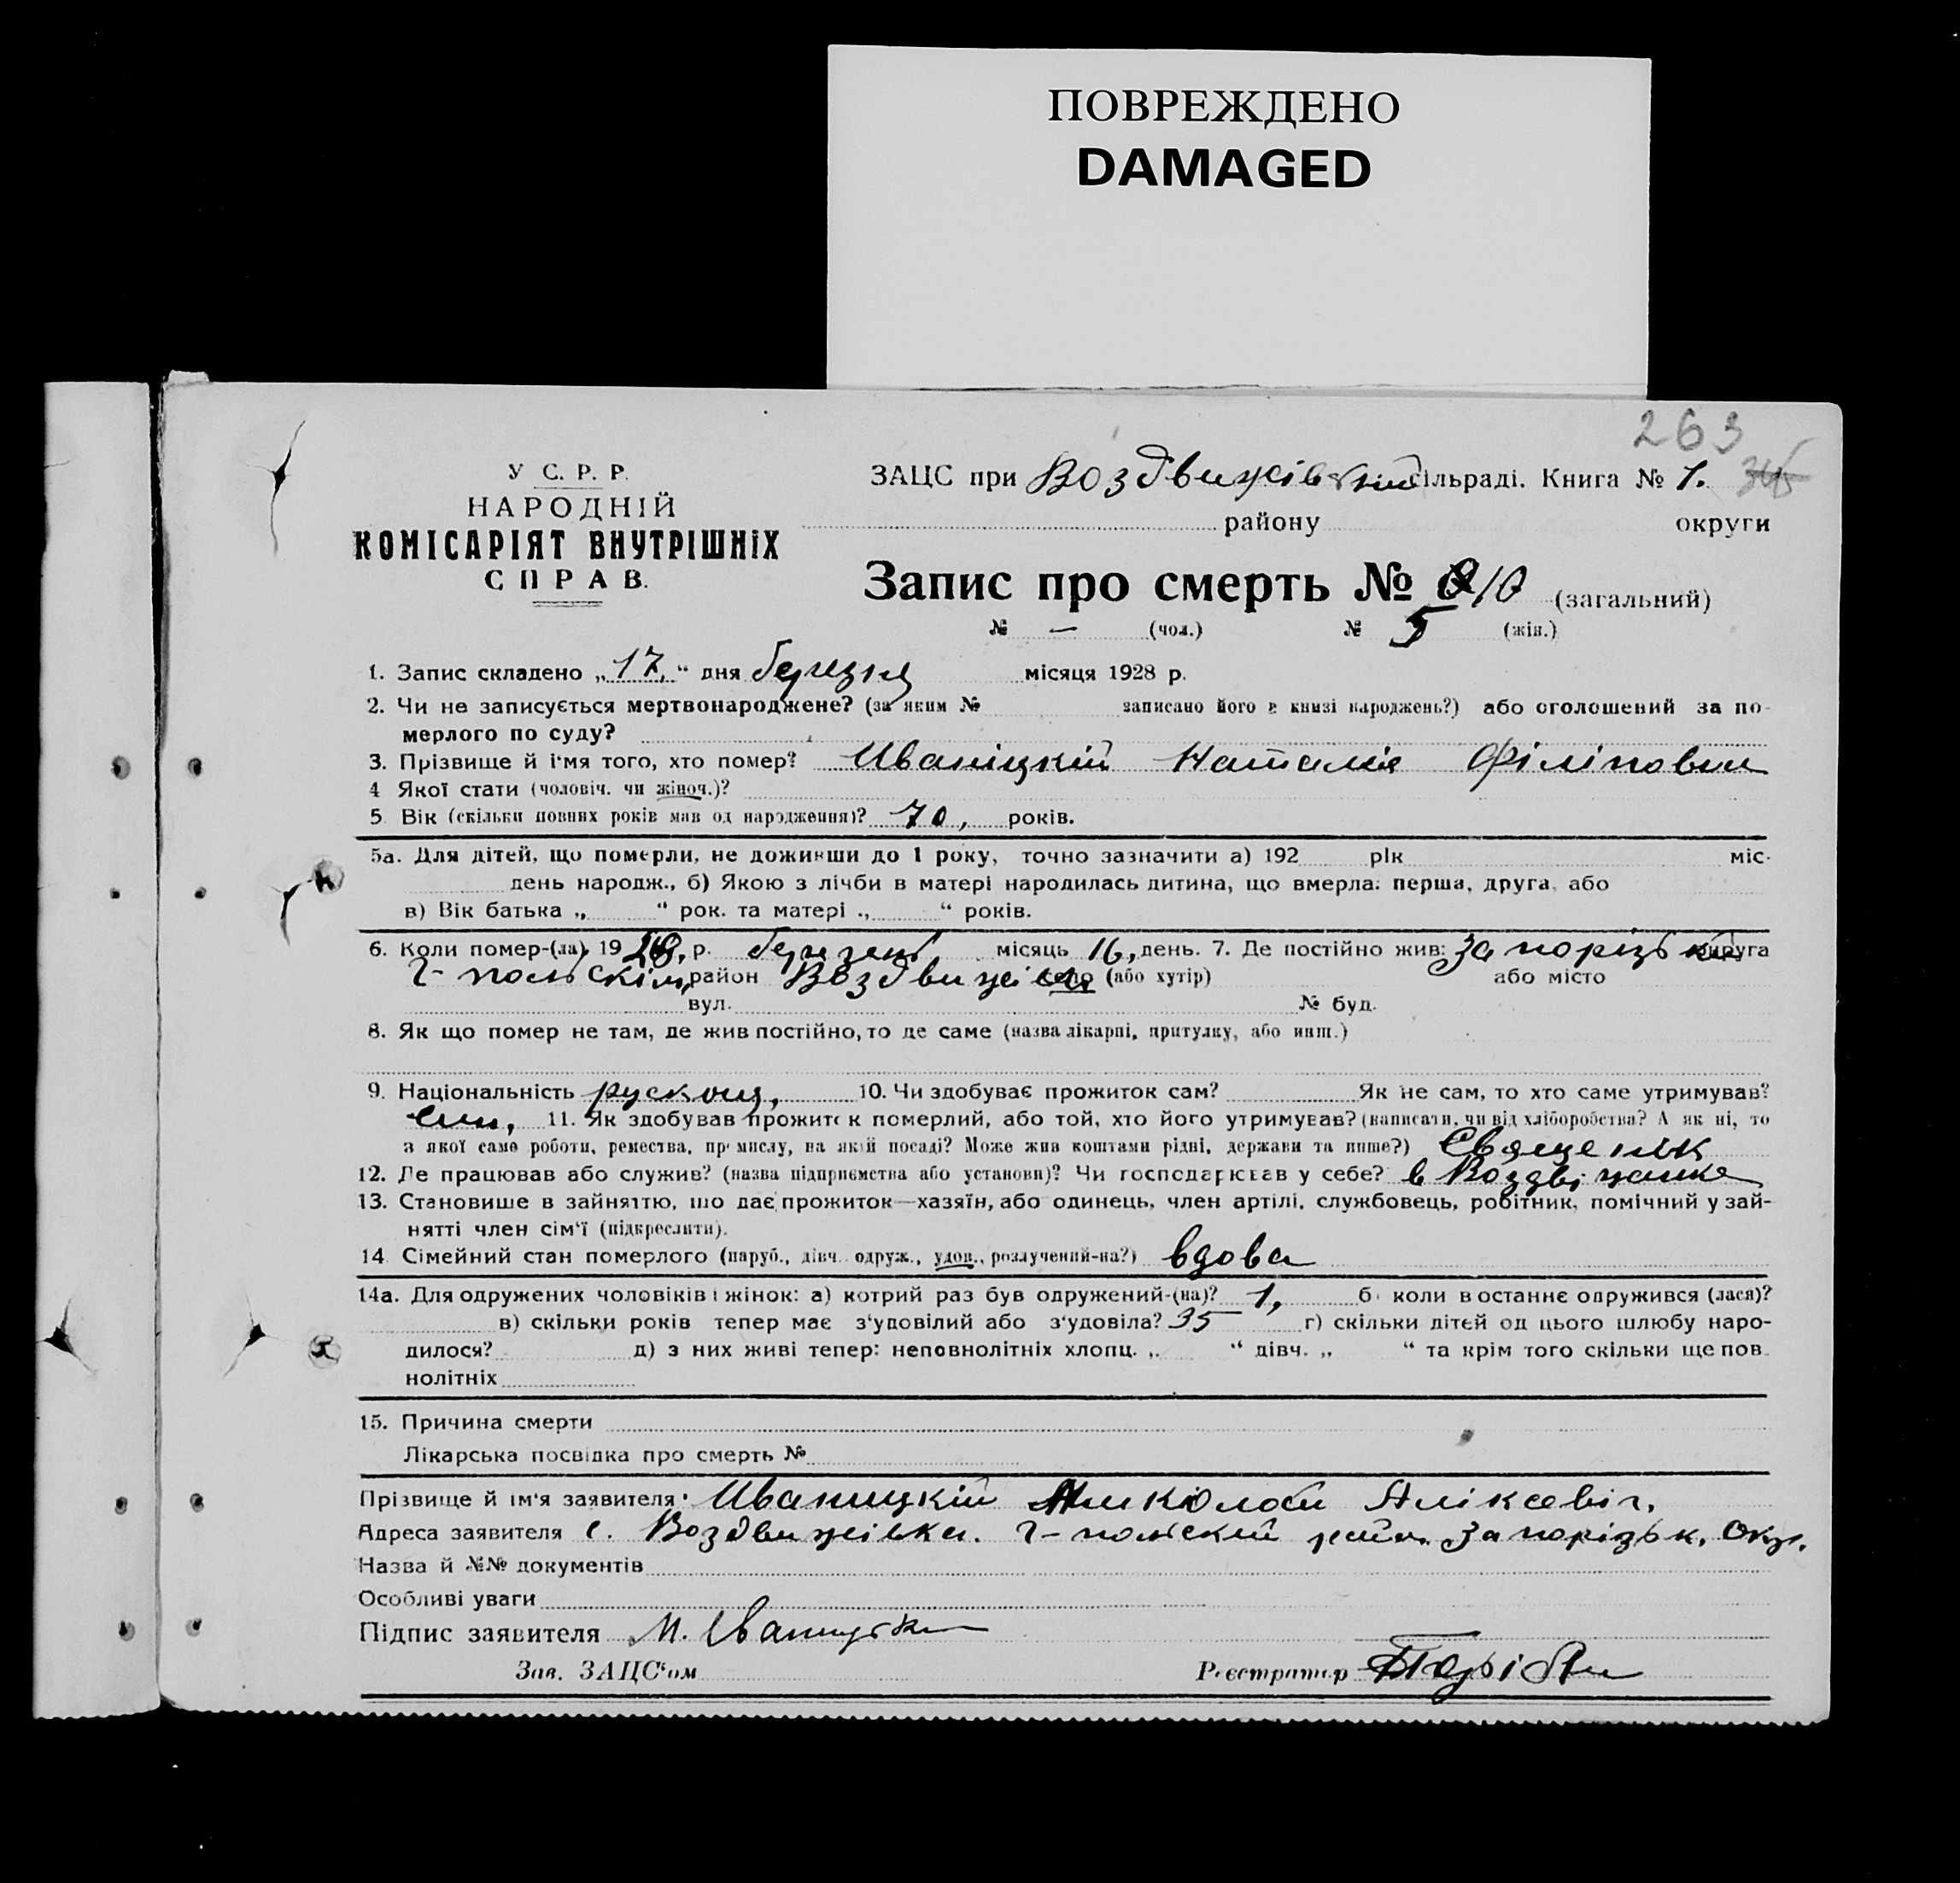 ПОВРЕЖДЕНО
DAMAGED
263
У С. Р. Р.
НАРОДНІЙ
КОМІСАРІЯТ ВНУТРІШНІХ
СПРАВ.
ЗАЦС при Воздвижівській сільраді. Книга № 1.
району округи
Запис про смерть № 10 (загальний)
№ — (чол.) № 5 (жін.)
1. Запис складено „17,“ дня березня місяця 1928 р.
2. Чи не записується мертвонароджене? (за яким № записано його в книзі народжень?) або оголошений за по-
мерлого по суду?
3. Прізвище й ім'я того, хто помер? Иваніцкій Наталія Філіповна
4 Якої стати (чоловіч. чи жіноч.)?
5. Вік (скільки повних років мав од народження)? 70, років.
5а. Для дітей, що померли, не доживши до 1 року, точно зазначити а) 192 рік міс.
день народж., б) Якою з лічби в матері народилась дитина, що вмерла: перша, друга, або
в) Вік батька „ “ рок. та матері „ “ років.
6. Коли помер-(ла), 1928, р. березень місяць 16, день. 7. Де постійно жив: Запорізькій округа
Г-польскім, район Воздвижівка село (або хутір) або місто
вул. № буд.
8. Як що помер не там, де жив постійно, то де саме (назва лікарні, притулку, або инш.)
9. Національність 10. Чи здобуває прожиток сам? Як не сам, то хто саме утримував?
син, 11. Як здобував прожиток померлий, або той, хто його утримував? (написати, чи від хліборобства? А як ні, то
з якої саме роботи, ремества, промислу, на якій посаді? Може жив коштами рідні, держави та инше?) Священік
12. Де працював або служив? (назва підприємства або установи)? Чи господарював у себе? в Воздвіжанке
13. Становище в зайняттю, що дає прожиток—хазяїн, або одинець, член артілі, службовець, робітник, помічний у зай-
нятті член сім'ї (підкреслити).
14. Сімейний стан померлого (паруб., дівч. одруж., удов., розлучений-на?) вдова
14а. Для одружених чоловіків і жінок: а) котрий раз був одружений-(на)? 1, б) коли в останнє одружився (лася)?
в) скільки років тепер має з'удовілий або з'удовіла? 35 г) скільки дітей од цього шлюбу наро-
дилося? д) з них живі тепер: неповнолітніх хлопц. „ “ дівч. „ “ та крім того скільки ще пов-
нолітніх
15. Причина смерти
Лікарська посвідка про смерть №
Прізвище й ім'я заявителя Иваницкій Николай Аліксевіч,
Адреса заявителя с. Воздвижівка. Г-польский район. Запорізьк. Окр.
Назва й №№ документів
Особливі уваги
Підпис заявителя М.
Зав. ЗАЦС'ом Реєстратор